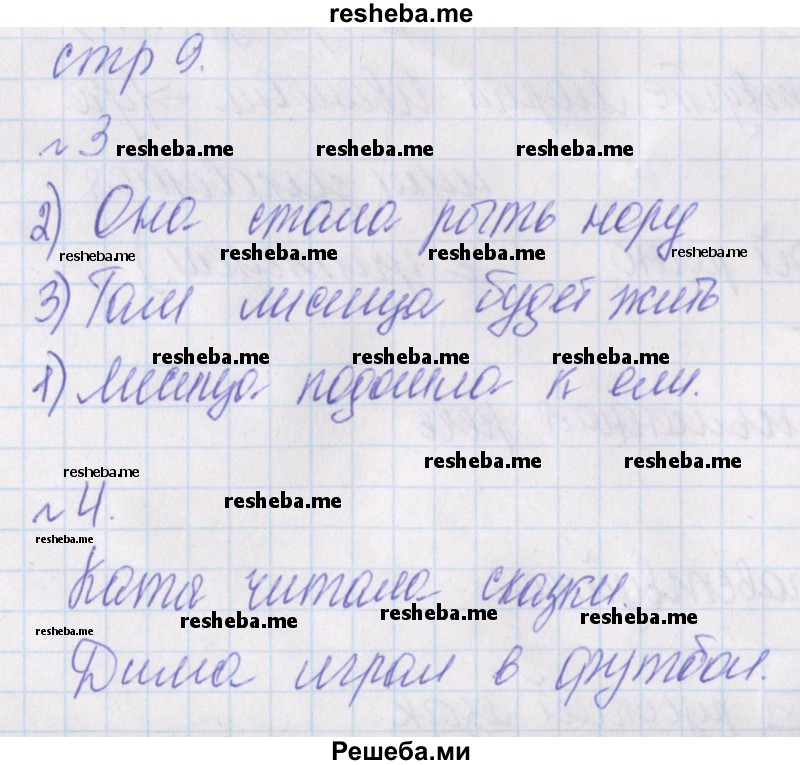 resheba.me
стр 9.
№3 resheba.me resheba.me resheba.me
2) Она стала рыть нору
resheba.me resheba.me resheba.me resheba.me
3) Там лисица будет жить
resheba.me resheba.me resheba.me
1) Лисица подошла к ели.
resheba.me resheba.me
resheba.me resheba.me
№4.
resheba.me
Катя читала сказки.
resheba.me resheba.me resheba.me resheba.me
Дима играл в футбол.
Решеба.ми